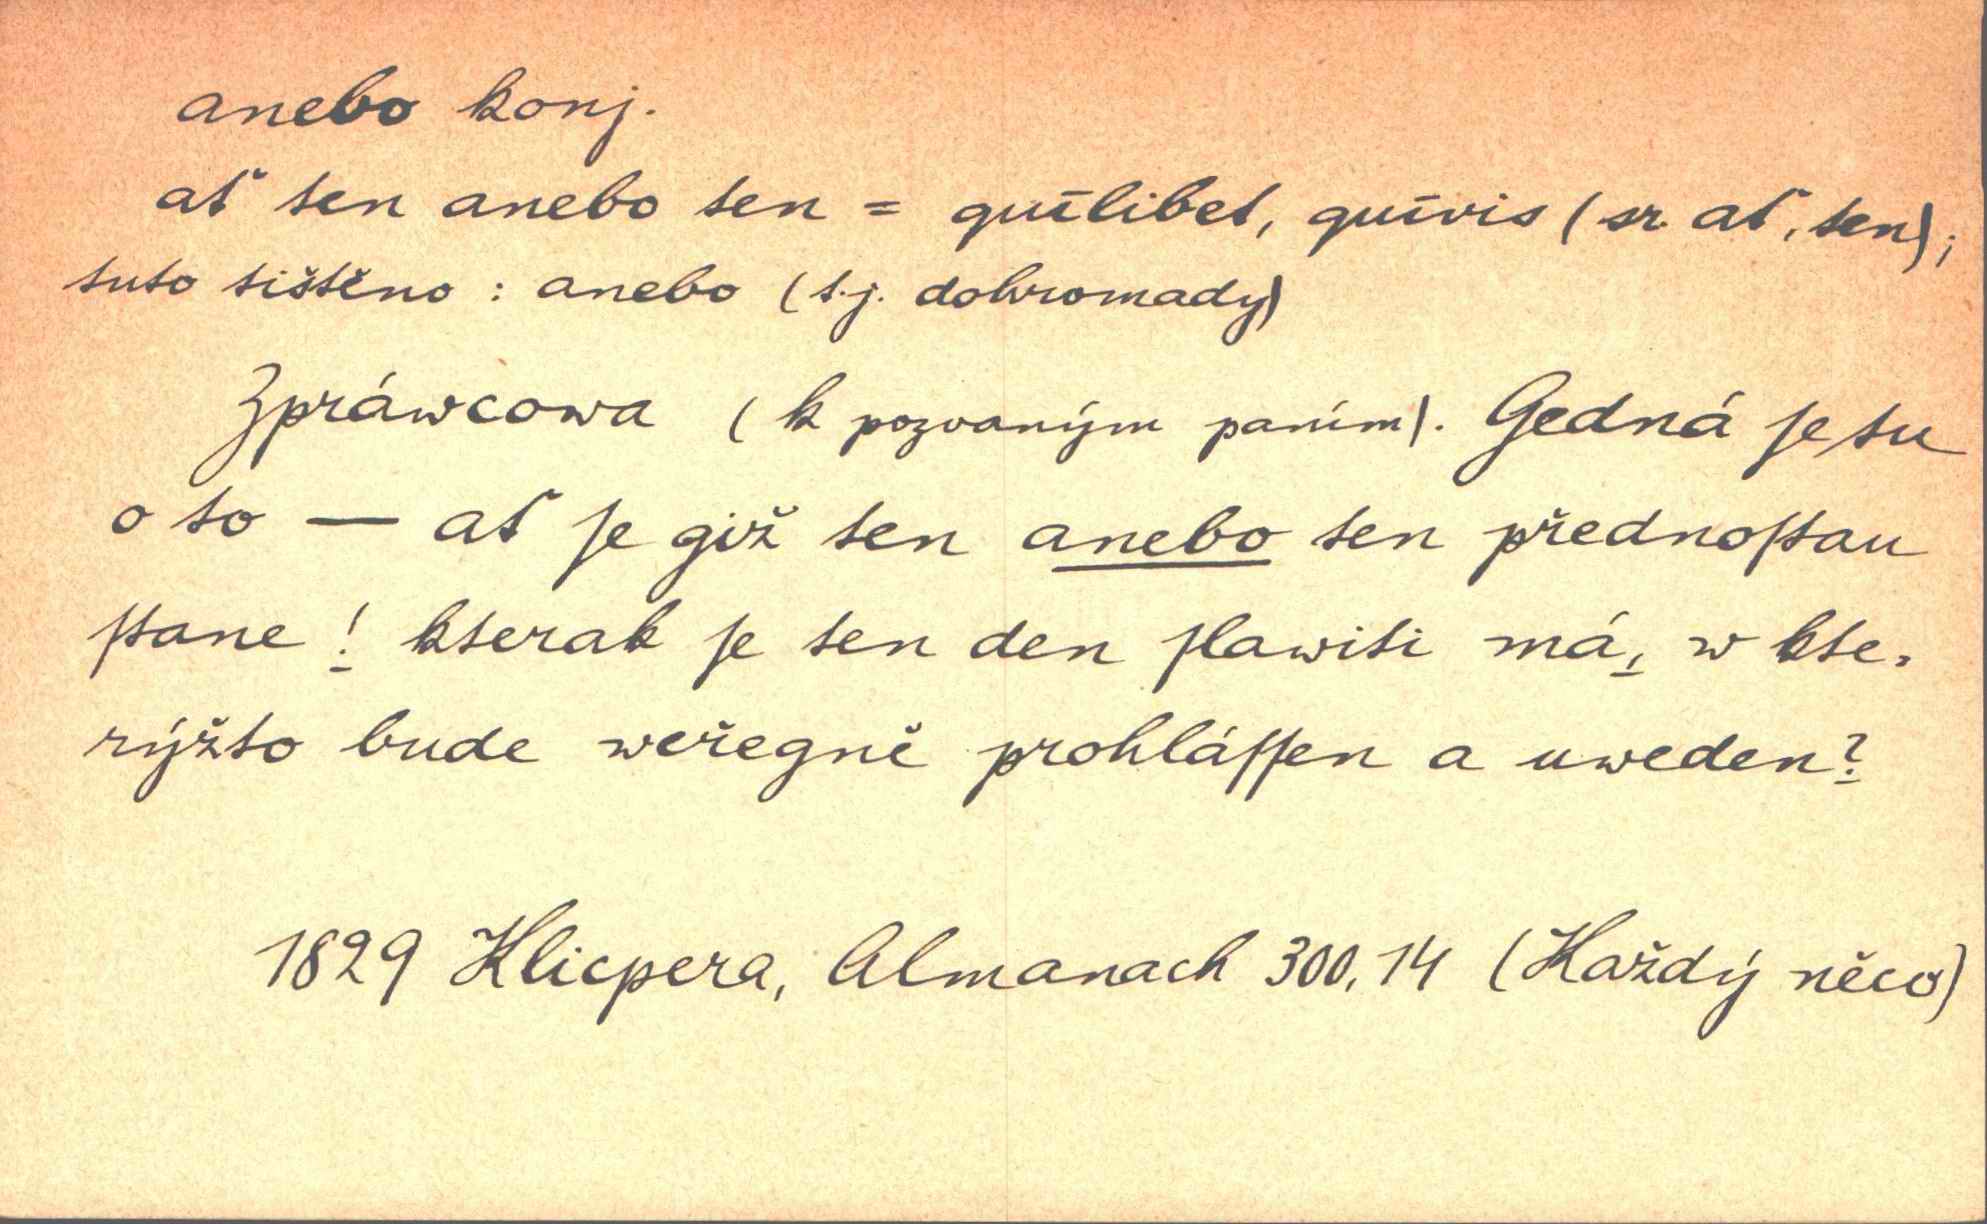 anebo konj.
ať ten anebo ten = quīlibet, quīvis (sr. ať, ten);
tuto tištěno : anebo (t.j. dohromady)
Zpráwcowa (k pozvaným paním). Gedná ſe tu
o to — ať ſe giž ten anebo ten přednoſtau
ſtane! kterak ſe ten den ſlawiti má, w kte-
rýžto bude weřegně prohláſſen a uweden?
1829 Klicpera, Almanach 300, 14 (Každý něco)